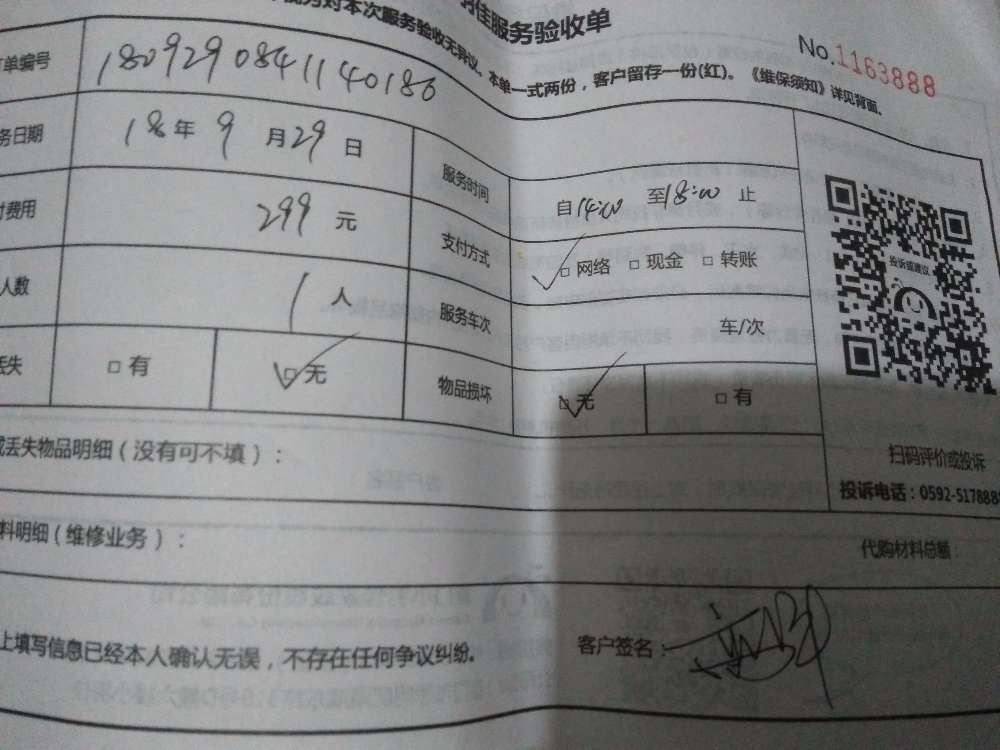 佳服务验收单
对本次服务验收无异议。本单一式两份，客户留存一份(红)。《维保须知》详见背面。
No.1163888
单编号 1809290841140186
务日期 18年9月29日 服务时间 自14:00 至18:00 止
费用 299元 支付方式 □网络 □现金 □转账
人数 1人 服务车次 车/次
丢失 □有 □无 物品损坏 □无 □有
投诉或建议
扫码评价或投诉
投诉电话：0592-517888
丢失物品明细（没有可不填）：
料明细（维修业务）： 代购材料总额：
上填写信息已经本人确认无误，不存在任何争议纠纷。 客户签名：